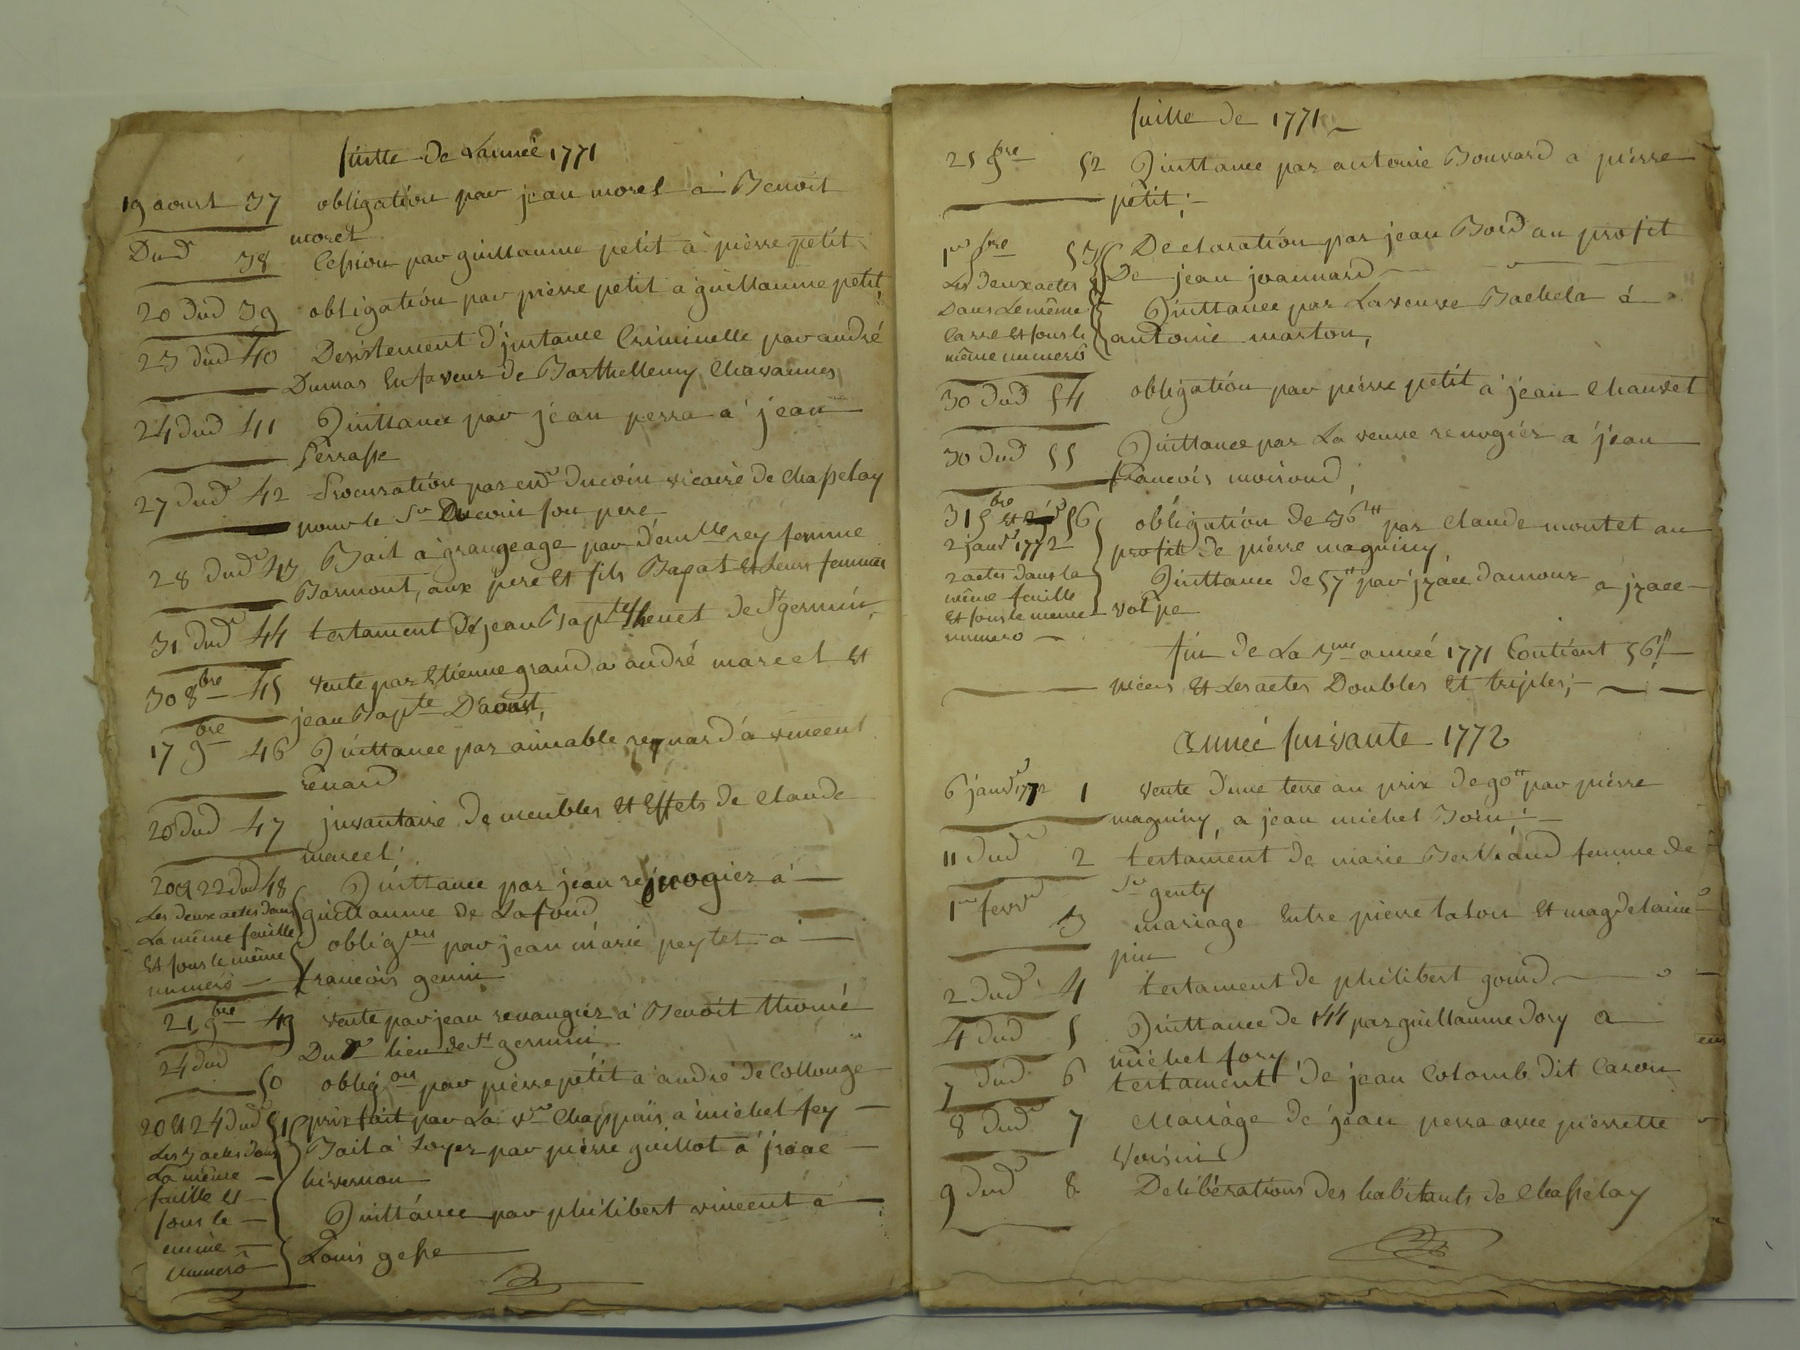 suitte de l'année 1771
19 aoust 37 obligatión par jean morel à Benoit
morel
Dud. 38 Cession par guillaume petit à pièrre petit
20 dud 39 obligatión par pièrre petit a guillaume petit
23 dud 40 Desistement d'jnstance Criminelle par andré
Dumas En faveur de Barthellemy Chavannes
24 dud 41 Quittance par jean perra a jean
Perrasse
27 dud 42 Procuratión par end. Ducoin vicaire de Chasselay
pour le Sr Ducoin son pere
28 dud 43 Bail à grangeage par demlle rey femme
Barmont, aux pere Et fils Bapat Et Leurs femmes
31 dud 44 testament de jean Bapte thenet de St germain,
30 8bre 45 vente par Etienne grand a andré marcel Et
jean Bapte Daoust,
17 9bre 46 Quittance par aimable reynard à vincent
renard
20 dud 47 jnvantaire de meubles Et Effets de Claude
marcel
20 & 22 dud 48 Quittance par jean renogier à
Les deux actes dans guillaume de Lafond
La même feuille obligon par jean marie peytel a
Et sous le même
numero françois genin
21 9bre 49 vente par jean renaugier à Benoit thomé
Dud. lieu de St germain
24 dud
50 obligon par pièrre petit a andré de Collonge
20 Et 24 dud 51 prix fait par La ve Chappuis à michel fey
Les 3 actes dans Bail à Loyer par pièrre guillot à jsaac
La même
feuille Et hivernon
sous le Quittance par philibert vincent à
même Louis gesse
numero
suitte de 1771
25 9bre 52 Quittance par antoine Bouvard a pièrre
petit;
1er Xbre 53 Declaratión par jean Boid au profit
Les deux actes De jean joannard
Dans Le même Quittance par La veuve Bachela à
Carre Et sous le antoine marton,
même numero
30 dud 54 obligatión par pièrre petit à jean Chauvet
30 dud 55 Quittance par La veuve renogier a jean
françois moiroud,
31 Xbre Et 56 obligatión de 36tt par Claude montet au
2 janvr 1772 profit de pièrre magniny,
2 actes dans la Quittance de 57tt par jzaac damour a jzaac
même feuille
Et sous le meme volpe
numero
fin de La 3me année 1771 Contient 56
pièces Et Les actes Doubles Et triples;
année suivante 1772
6 janvr 1772 1 vente d'une terre au prix de 90tt par pièrre
magniny, a jean michel Boin
11 dud 2 testament de marie Bertrand femme de
Sr genty
1er fevr 3 mariage Entre pierre talon Et magdelaine
pin
2 dud 4 testament de philibert gourd
4 dud 5 Quittance de 144 par guillaume dory a
michel fory
7 dud 6 testament de jean Colomb dit Caron
8 dud 7 Mariage de jean perra avec pièrrette
voisin
9 dud 8 Delibérations des habitants de Chasselay